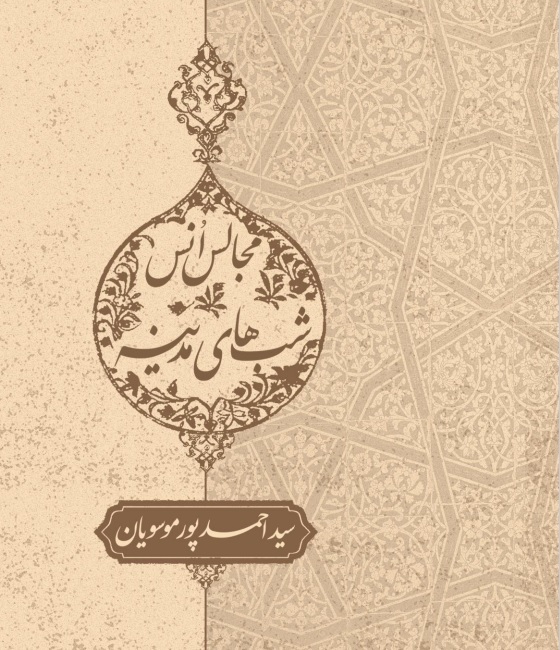 مجالس اُنس
شب‌های مدینه
سید احمد پورموسویان